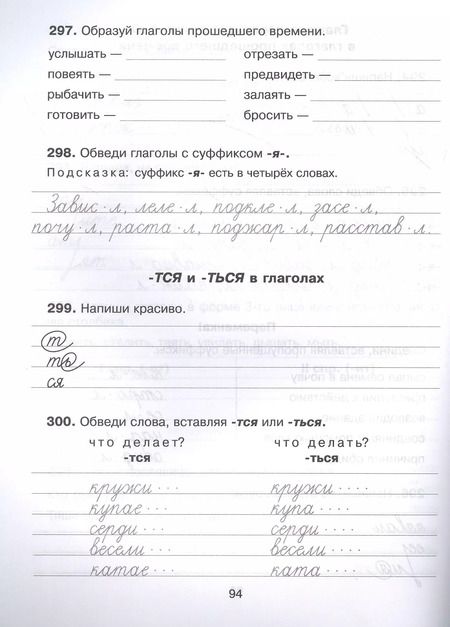 297. Образуй глаголы прошедшего времени.
услышать — отрезать —
повеять — предвидеть —
рыбачить — залаять —
готовить — бросить —
298. Обведи глаголы с суффиксом -я-.
Подсказка: суффикс -я- есть в четырёх словах.
Завис·л, леле·л, подкле·л, засе·л,
почу·л, раста·л, поджар·л, расстав·л.
-ТСЯ и -ТЬСЯ в глаголах
299. Напиши красиво.
т
ть
ся
300. Обведи слова, вставляя -тся или -ться.
что делает? что делать?
-тся -ться
кружи··· кружи····
купае··· купа····
серди··· серди····
весели··· весели····
катае··· ката····
94